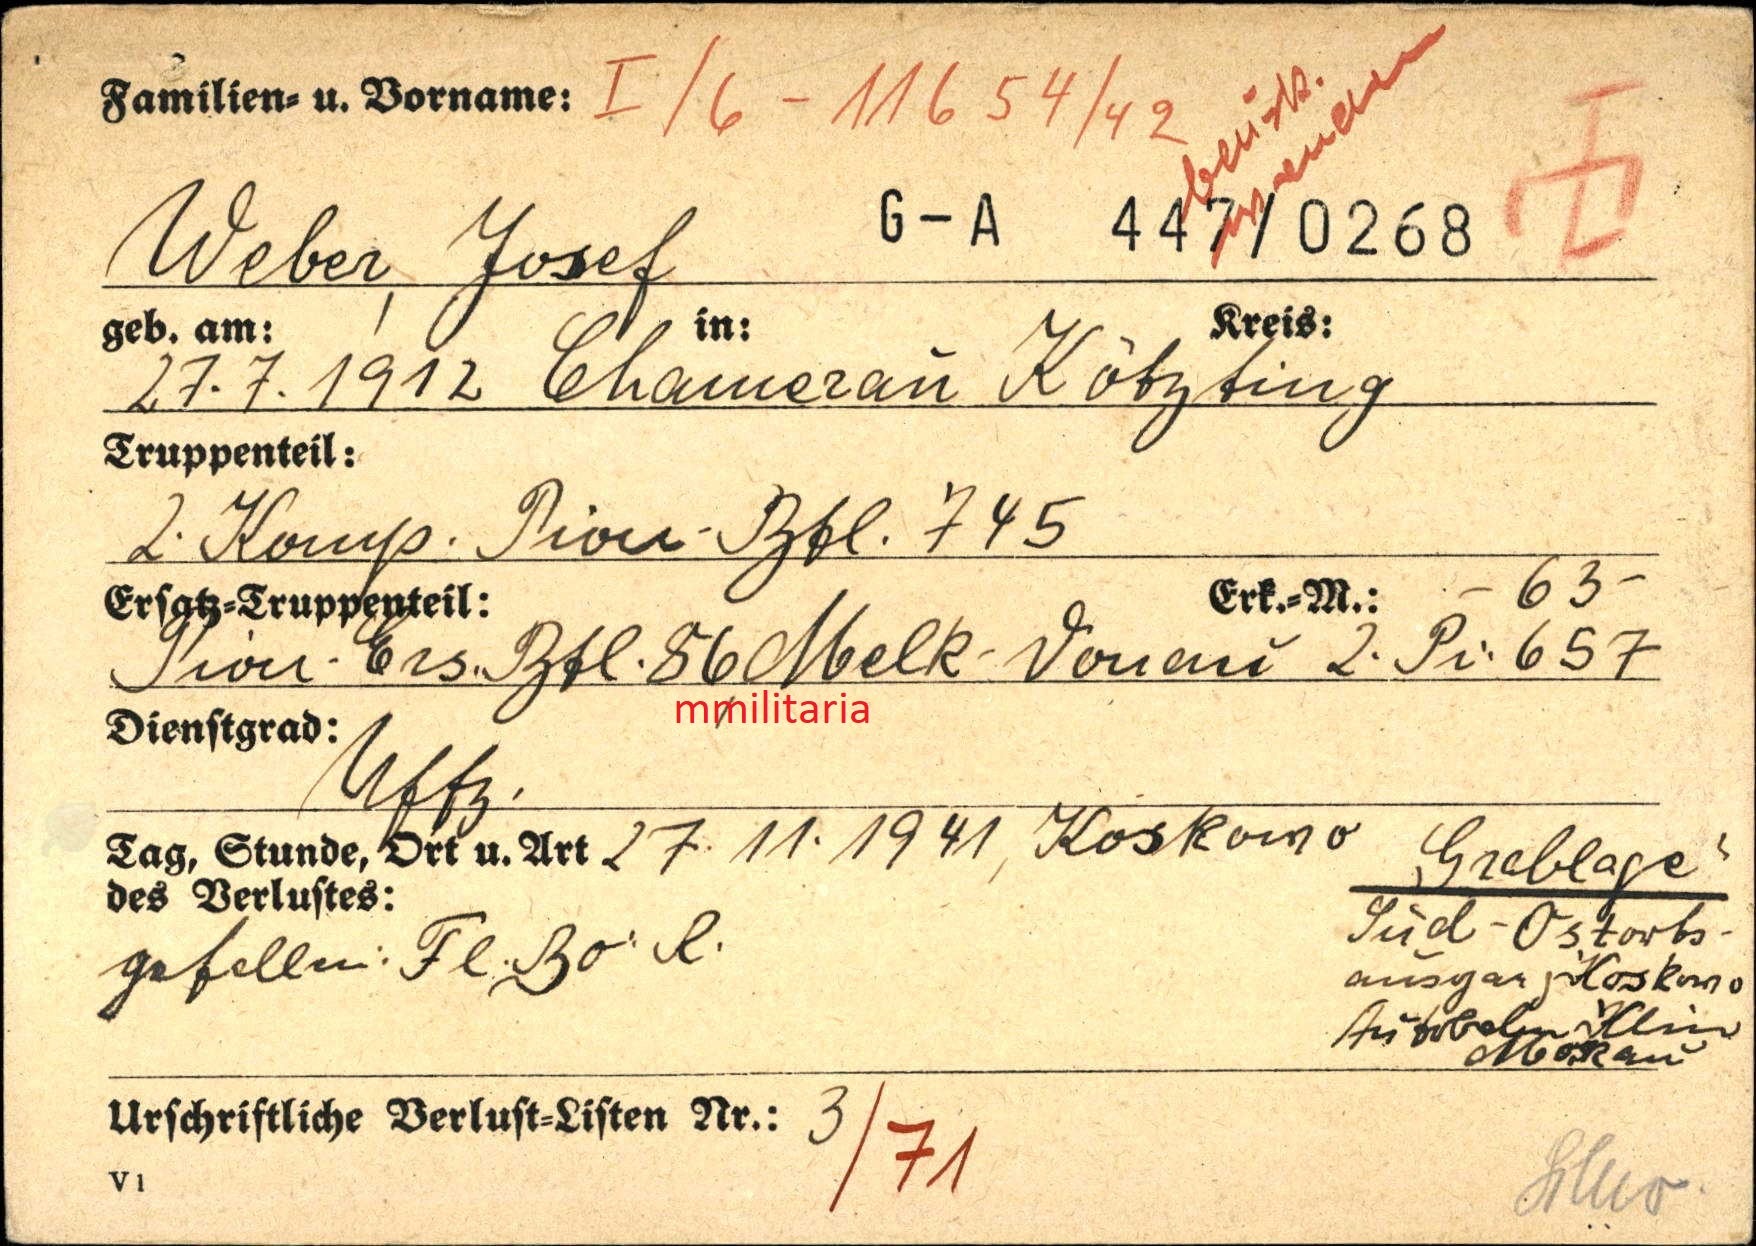 Familien- u. Vorname: I/6 - 11654/42
beurk. worden
Weber, Josef G-A 447/0268
geb. am: in: Kreis:
27.7.1912 Chamerau Kötzting
Truppenteil:
2. Komp. Pion-Btl. 745
Ersatz-Truppenteil: Erk.-M.: -63-
Pion-Ers. Btl. 86, Melk-Donau 2. Pi. 657
Dienstgrad:
mmilitaria
Uffz.
Tag, Stunde, Ort u. Art 27.11.1941, Koskowo
des Verlustes:
gefallen: Fl. Bo. R.
"Grablage"
Süd-Ostorts-
ausgang Koskowo
Autobahn Klin
Moskau
Urschriftliche Verlust-Listen Nr.: 3/71
V1